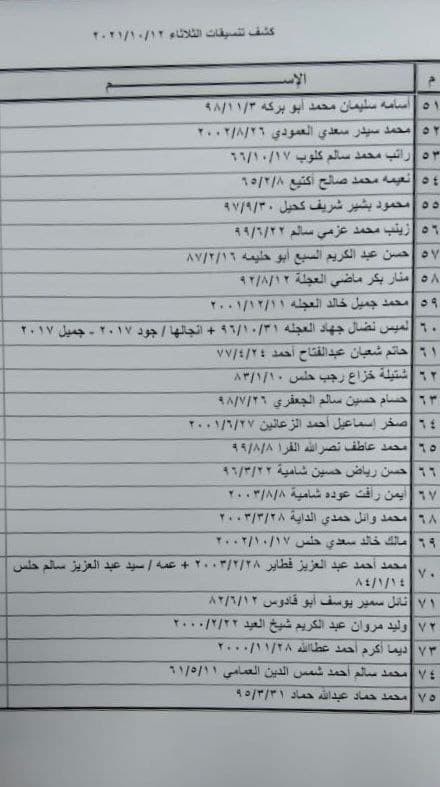 كشف تنسيقات الثلاثاء ٢٠٢١/١٠/١٢
م الإســــــــم
٥١ أسامه سليمان محمد أبو بركه ٩٨/١١/٣
٥٢ محمد سيدر سعدي العمودي ٢٠٠٢/٨/٢٦
٥٣ راتب محمد سالم كلوب ٦٦/١٠/١٧
٥٤ نعيمه محمد صالح أكتيع ٦٥/٢/٨
٥٥ محمود بشير شريف كحيل ٩٧/٩/٣٠
٥٦ زينب محمد عزمي سالم ٩٩/٦/٢٢
٥٧ حسن عبد الكريم السبع أبو حليمه ٨٧/٢/١٦
٥٨ منار بكر ماضي العجلة ٩٢/٨/١٢
٥٩ محمد جميل خالد العجله ٢٠٠١/١٢/١١
٦٠ لميس نضال جهاد العجله ٩٦/١٠/٣١ + انجالها / جود ٢٠١٧ - جميل ٢٠١٧
٦١ حاتم شعبان عبدالفتاح أحمد ٧٧/٤/٢٤
٦٢ شتيلة خزاع رجب حلس ٨٣/١/١٠
٦٣ حسام حسين سالم الجعفري ٩٨/٧/٢٦
٦٤ صخر إسماعيل أحمد الزعالين ٢٠٠١/٦/٢٧
٦٥ محمد عاطف نصرالله الفرا ٩٩/٨/٨
٦٦ حسن رياض حسين شامية ٩٦/٣/٢٢
٦٧ أيمن رأفت عوده شامية ٢٠٠٣/٨/٨
٦٨ محمد وائل حمدي الداية ٢٠٠٣/٣/٢٨
٦٩ مالك خالد سعدي حلس ٢٠٠٢/١٠/١٧
٧٠ محمد أحمد عبد العزيز فطاير ٢٠٠٣/٢/٢٨ + عمه / سيد عبد العزيز سالم حلس
٨٤/١/١٤
٧١ نائل سمير يوسف أبو قادوس ٨٢/٦/١٢
٧٢ وليد مروان عبد الكريم شيخ العيد ٢٠٠٠/٢/٢٢
٧٣ ديما أكرم أحمد عطاالله ٢٠٠٠/١١/٢٨
٧٤ محمد سالم أحمد شمس الدين العمامي ٦١/٥/١١
٧٥ محمد حماد عبدالله حماد ٩٥/٣/٣١